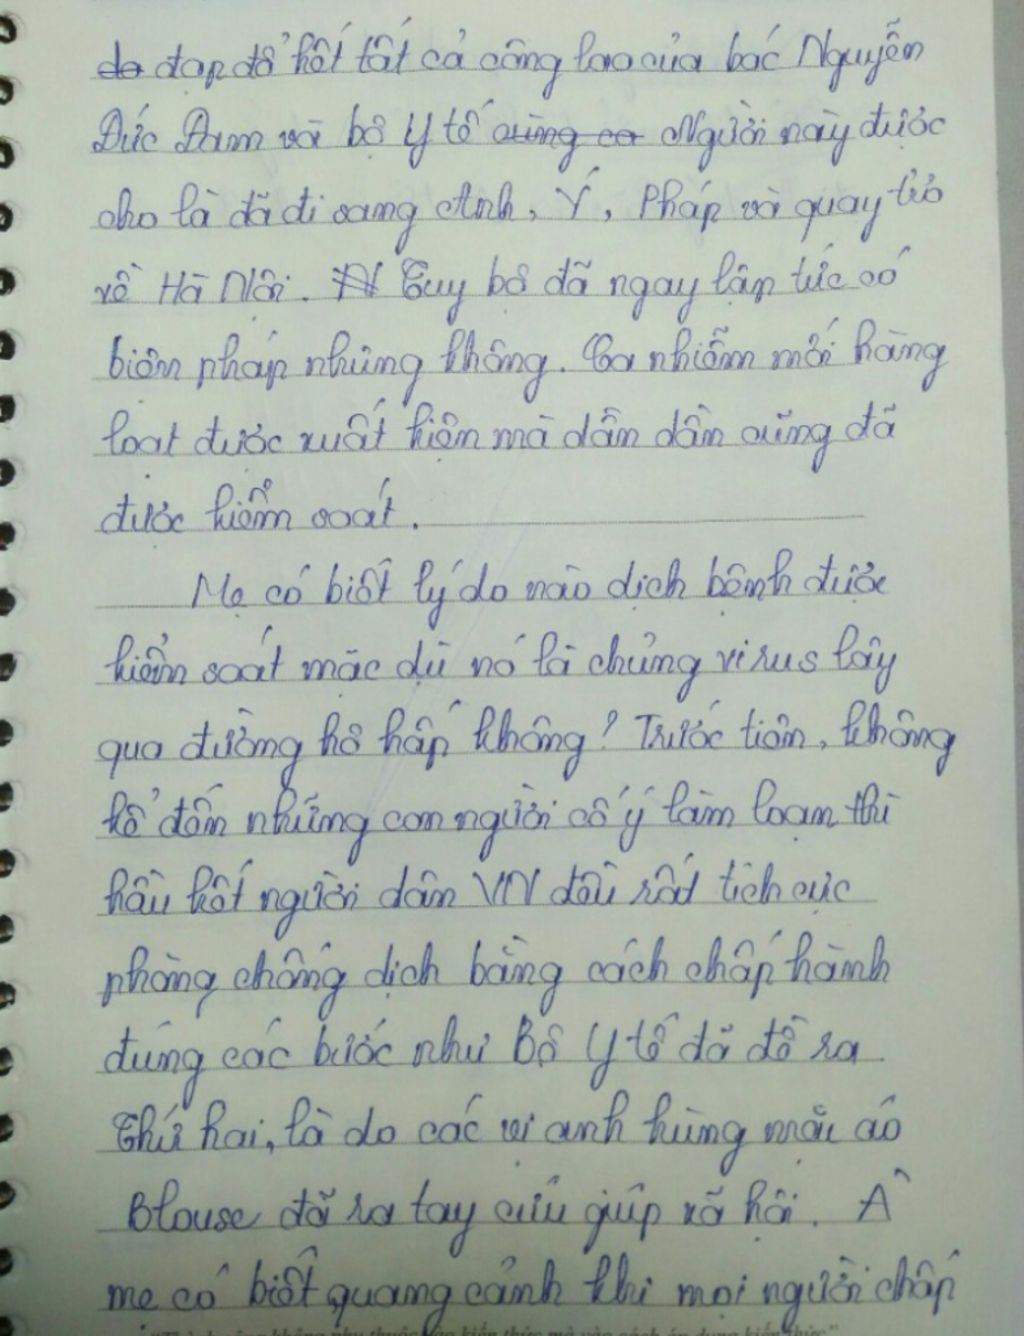 do đạp đổ hết tất cả công lao của bác Nguyễn
Đức Đam và bộ Y tế cùng co Người này được
cho là đã đi sang Anh, Ý, Pháp và quay trở
về Hà Nội. N Tuy bộ đã ngay lập tức có
biện pháp nhưng không. Ca nhiễm mới hàng
loạt được xuất hiện mà dần dần cũng đã
được kiểm soát.
Mẹ có biết lý do nào dịch bệnh được
kiểm soát mặc dù nó là chủng virus lây
qua đường hô hấp không? Trước tiên, không
kể đến những con người cố ý làm loạn thì
hầu hết người dân VN đều rất tích cực
phòng chống dịch bằng cách chấp hành
đúng các bước như Bộ Y tế đã đề ra
Thứ hai, là do các vị anh hùng mặc áo
Blouse đã ra tay cứu giúp xã hội. À
mẹ có biết quang cảnh khi mọi người chấp